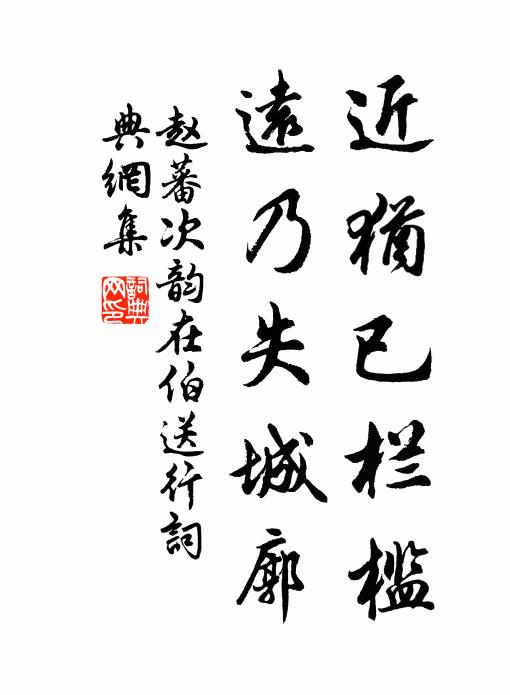 近猶已栏槛
遠乃失城廓
赵蕃次韵在伯送行詞
典網集
詞典
网印